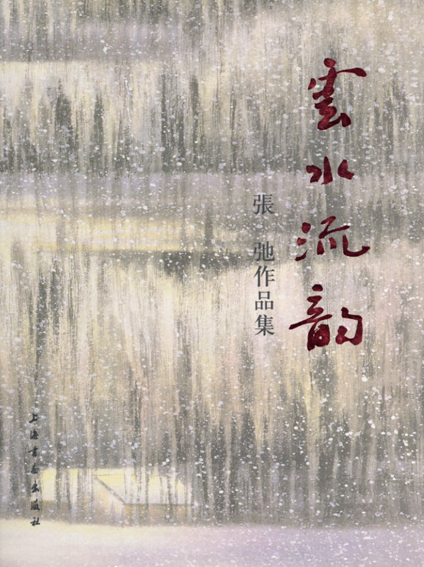 雲水流韵
張弛作品集
上海書畫出版社